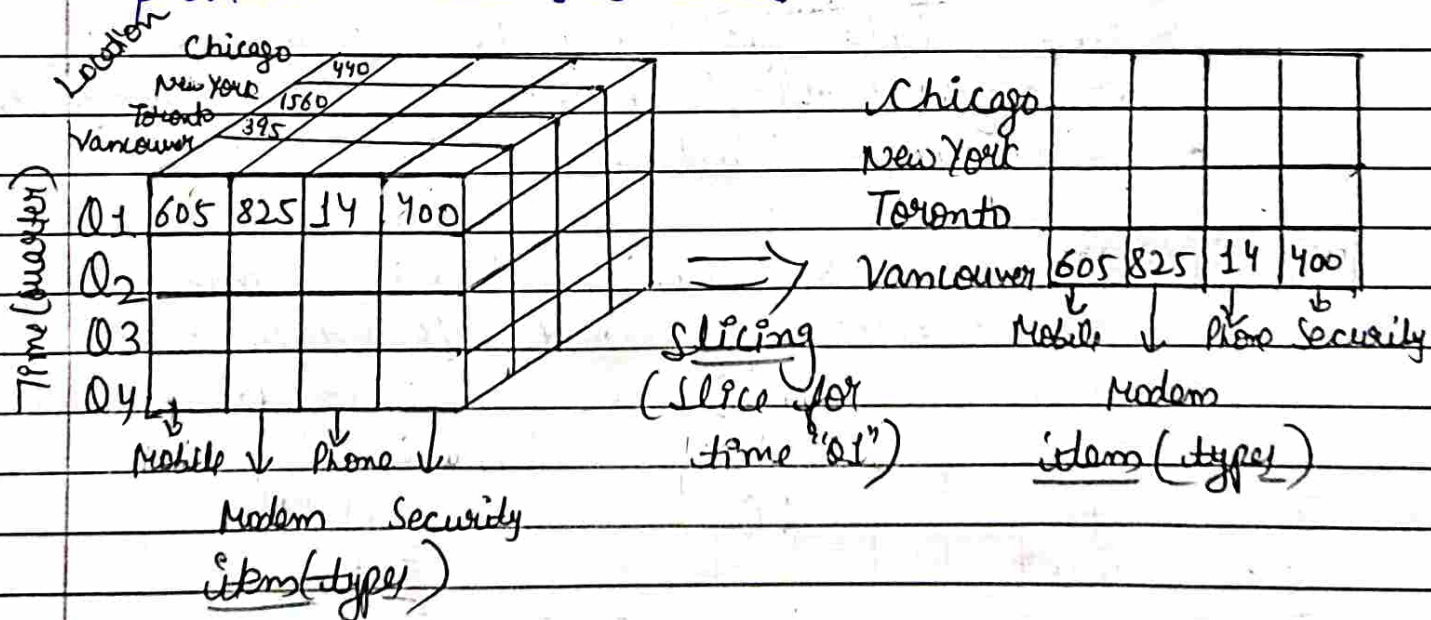 Location
Chicago
New York
Toronto
Vancouver
440
1560
395
Time (Quarter)
Q1 605 825 14 400
Q2
Q3
Q4
Mobile Phone
Modem Security
item (types)
Slicing
(Slice for
time "Q1")
Chicago
New York
Toronto
Vancouver 605 825 14 400
Mobile Phone Security
Modem
item (types)